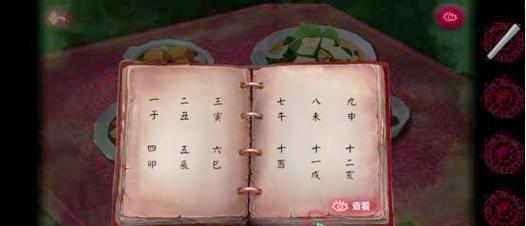 一 二 三
子 丑 寅
四 五 六
卯 辰 巳
七 八 九
午 未 申
十 十一 十二
酉 戌 亥
查看